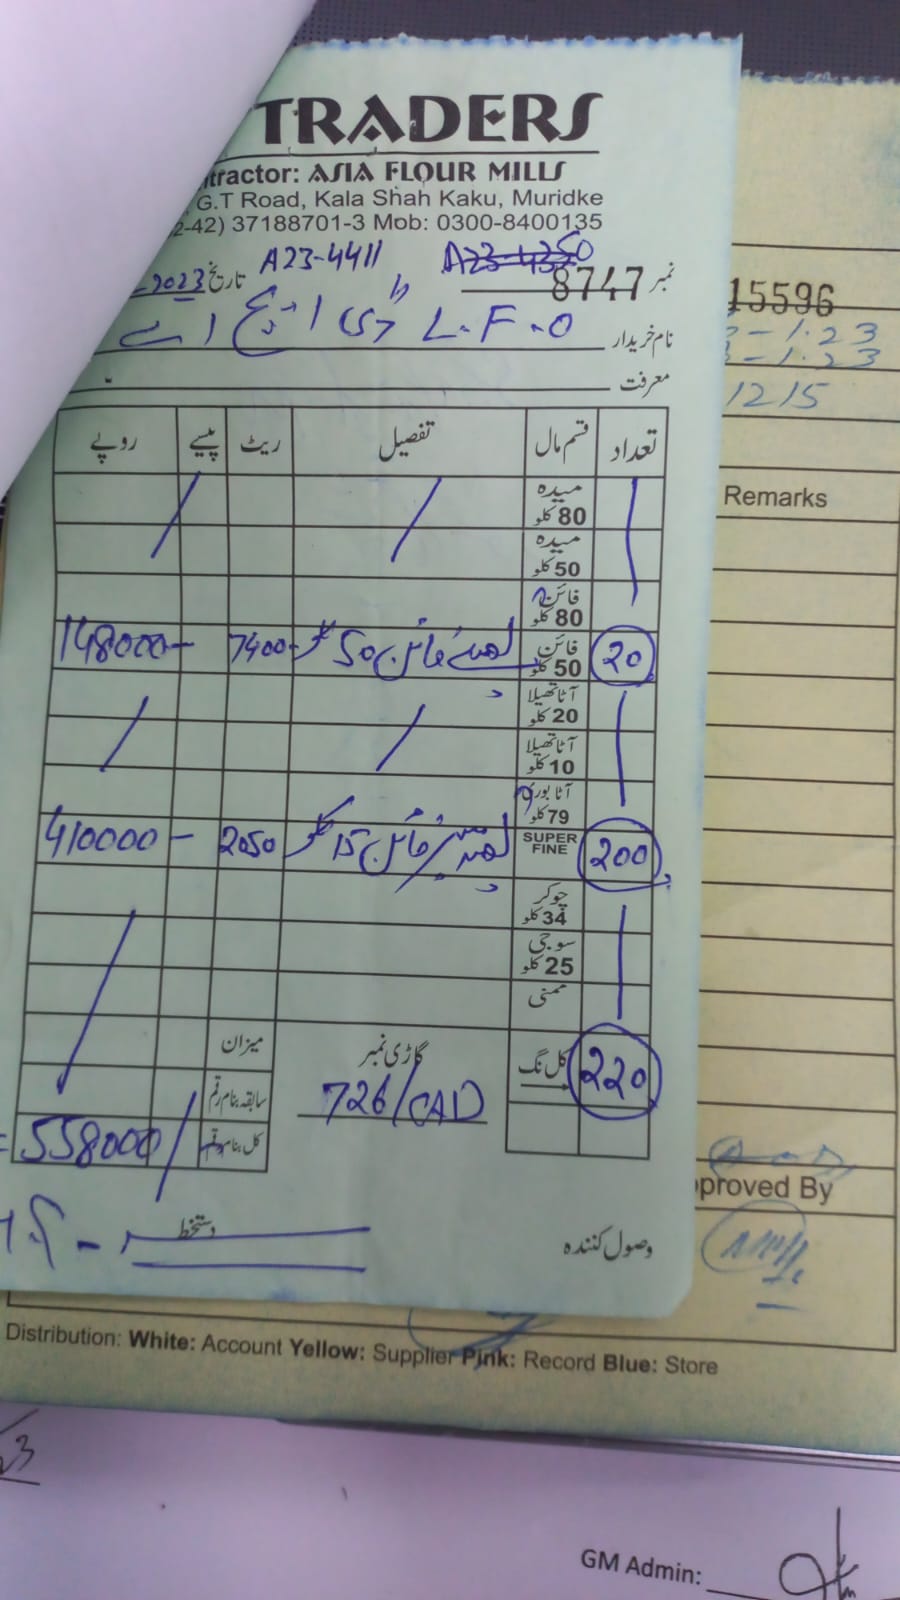 TRADERS
ntractor: ASIA FLOUR MILLS
, G.T Road, Kala Shah Kaku, Muridke
2-42) 37188701-3 Mob: 0300-8400135
A23-4411
نمبر 8747 تاریخ 2023
نام خریدار L.F.O ڈی ایچ اے
معرفت
تعداد قسم مال تفصیل ریٹ پیسے روپے
میدہ 80 کلو
میدہ 50 کلو
فائن 80 کلو
20 فائن 50 کلو فائن 50 کلو 7400 148000
آٹا تھیلا 20 کلو
آٹا تھیلا 10 کلو
آٹا بوری 79 کلو
200 SUPER FINE فائن 15 کلو 2050 410000
چوکر 34 کلو
سوجی 25 کلو
ممنی
220 کل نگ گاڑی نمبر میزان
726/CAD سابقہ بنام رقم
کل بنام رقم 558000
وصول کنندہ دستخط
15596
1.23
1.23
1215
Remarks
pproved By
Distribution: White: Account Yellow: Supplier Pink: Record Blue: Store
GM Admin: